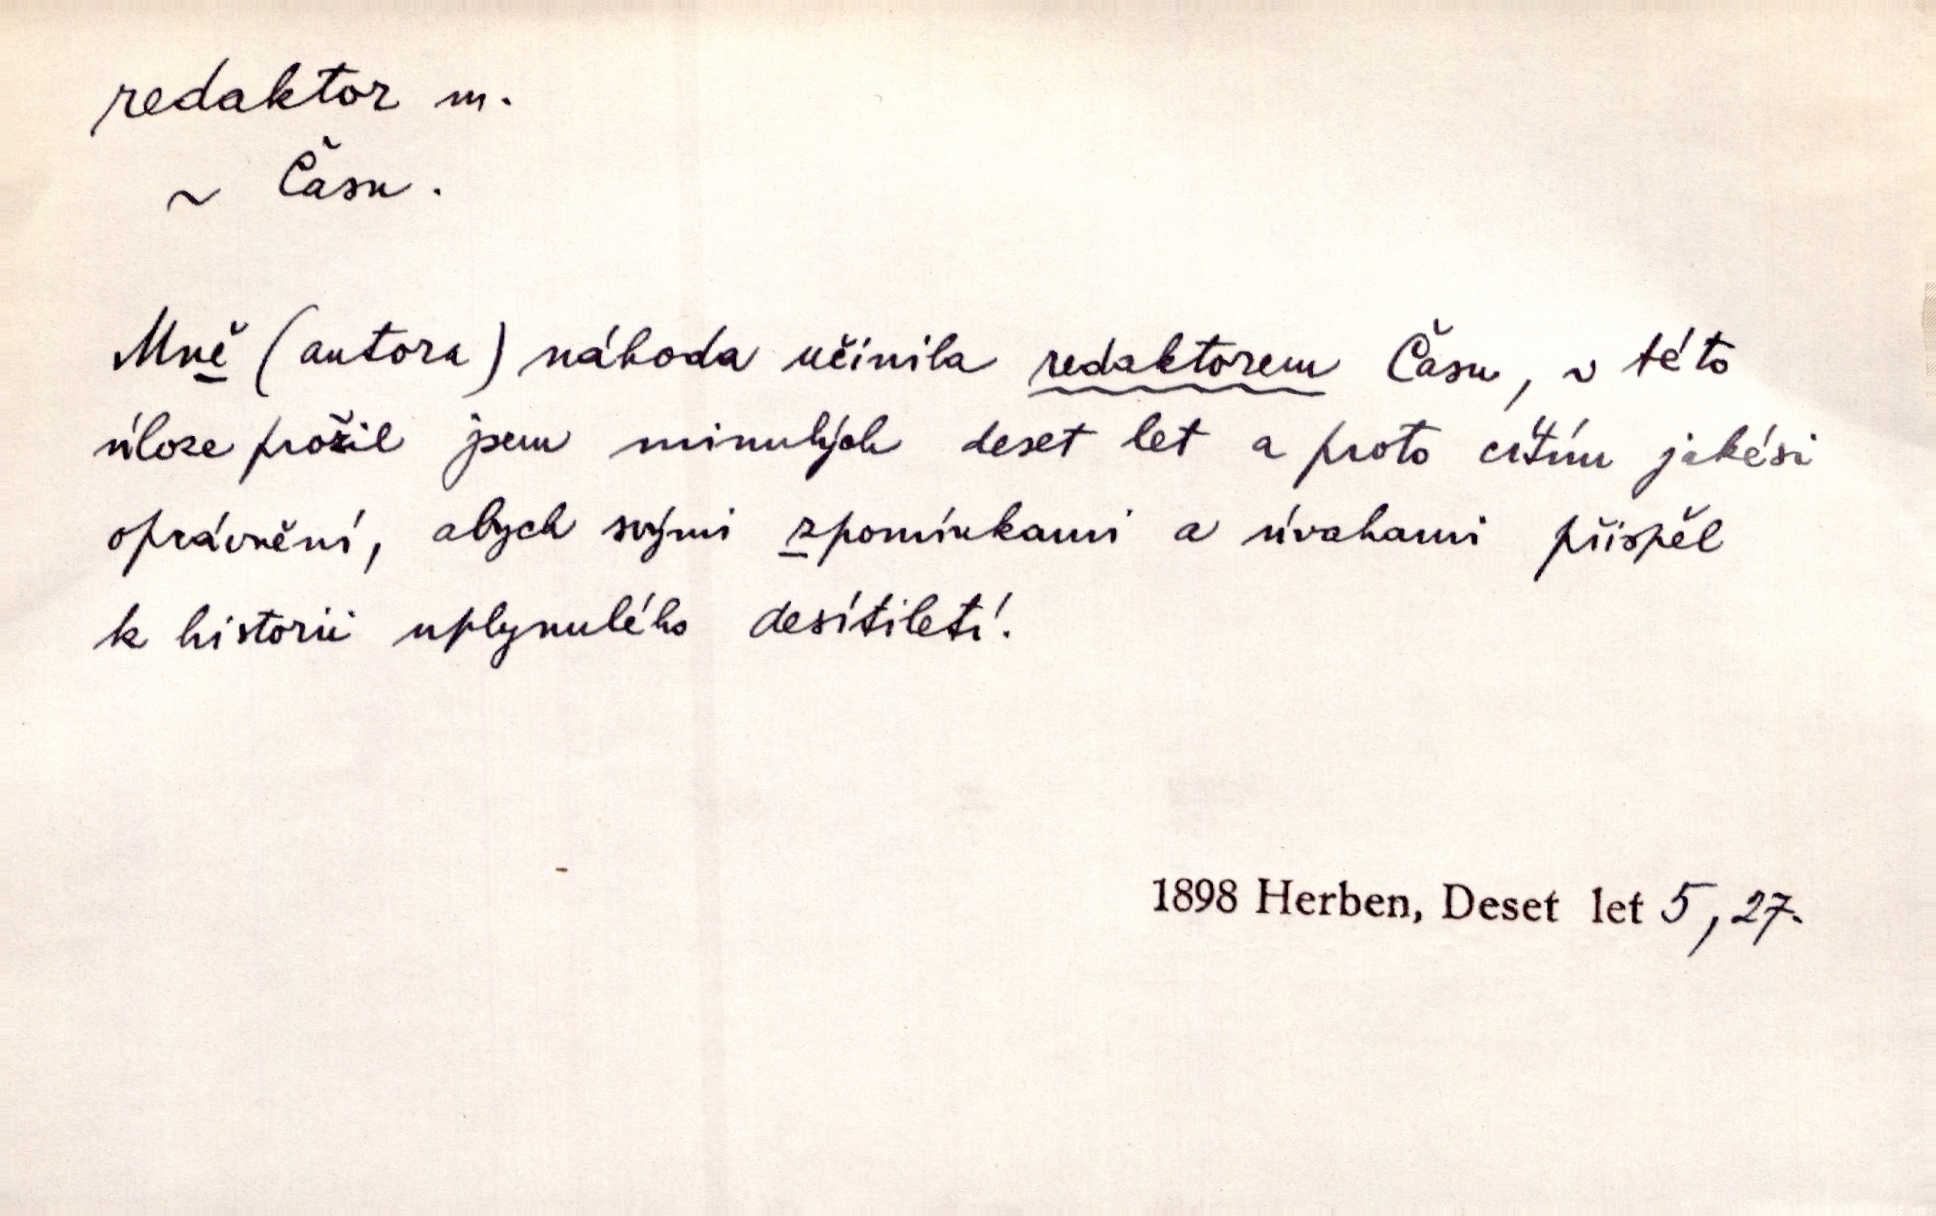 redaktor m.
~ Času.
Mně (autora) náhoda učinila redaktorem Času, v této
úloze prožil jsem minulých deset let a proto cítím jakési
oprávnění, abych svými zpomínkami a úvahami přispěl
k historii uplynulého desítiletí.
1898 Herben, Deset let 5, 27.